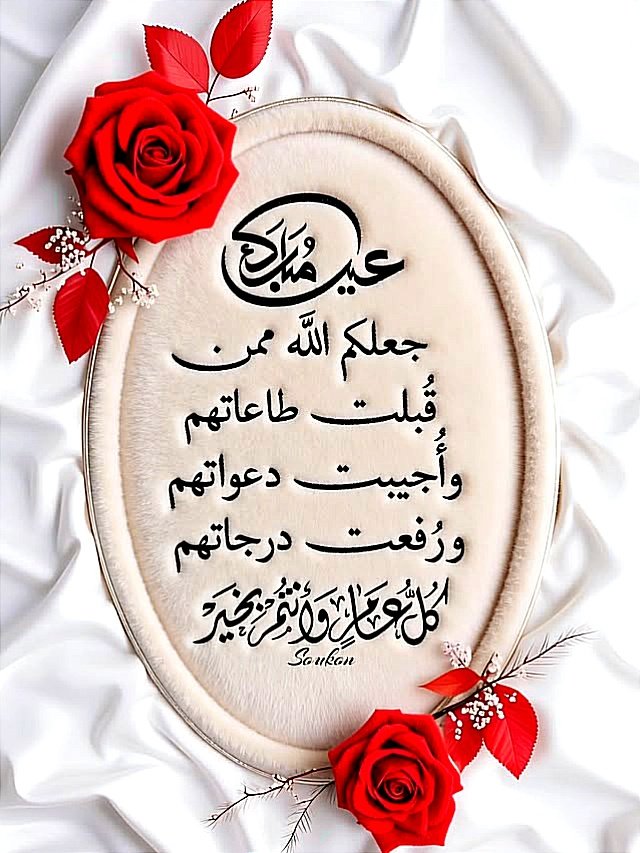 عيد مُبَارَك
جعلكم اللَّه ممن
قُبلت طاعاتهم
وأُجيبت دعواتهم
ورُفعت درجاتهم
كُلُّ عَامٍ وَأَنْتُمْ بِخَيْر
Soukon